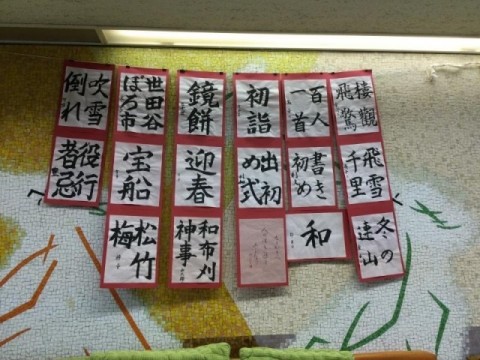 棲觀
飛驚
飛雪
千里
冬の
遠山
百人
一首
書き
初め
和
初詣
出初
め式
鏡餅
迎春
和布刈
神事
世田谷
ぼろ市
宝船
松竹
梅
吹雪
倒れ
役行
者忌